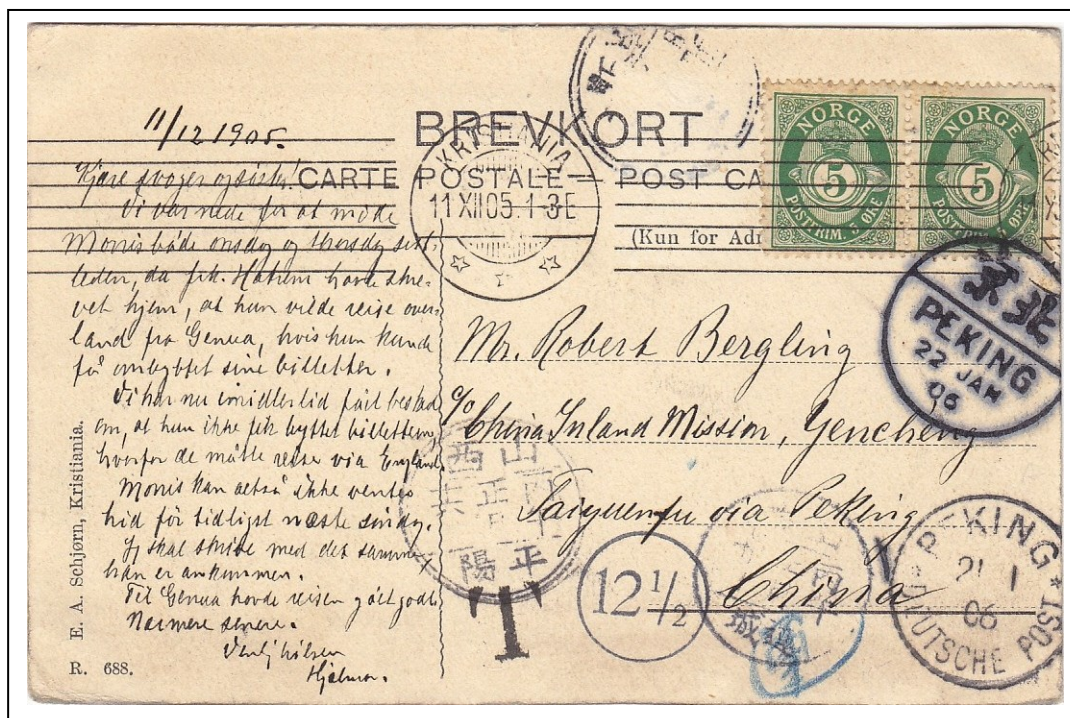 11/12 1905.
BREVKORT
CARTE POSTALE — POST CA
(Kun for Adr
KRISTIANIA
11 XII 05. 1-3 E
NORGE
5
POSTFRIM. 5 ØRE
NORGE
5
POSTFRIM. 5 ØRE
Kjære svoger og søster!
Vi var nede for at møde
Monis både onsdag og thorsdag sist-
leden, da frk. Hattrem havde skre-
vet hjem, at hun vilde reise over-
land fra Genua, hvis hun kunde
få ombyttet sine billetter.
Vi har nu imidlertid fået besked
om, at hun ikke fik byttet billetterne,
hvorfor de måtte reise via England.
Monis kan altså ikke ventes
hid før tidligst næste søndag.
Jeg skal skrive med det samme
han er ankommen.
Til Genua havde reisen gået godt.
Nærmere senere.
Venlig hilsen
Hjalmar.
Mr. Robert Bergling
c/o China Inland Mission, Yencheng
Taiyuenfu via Peking
China
京北
PEKING
22 JAN
06
PEKING
21 1
06
DEUTSCHE POST
西山
陽平
T
12 1/2
E. A. Schjørn, Kristiania.
R. 688.